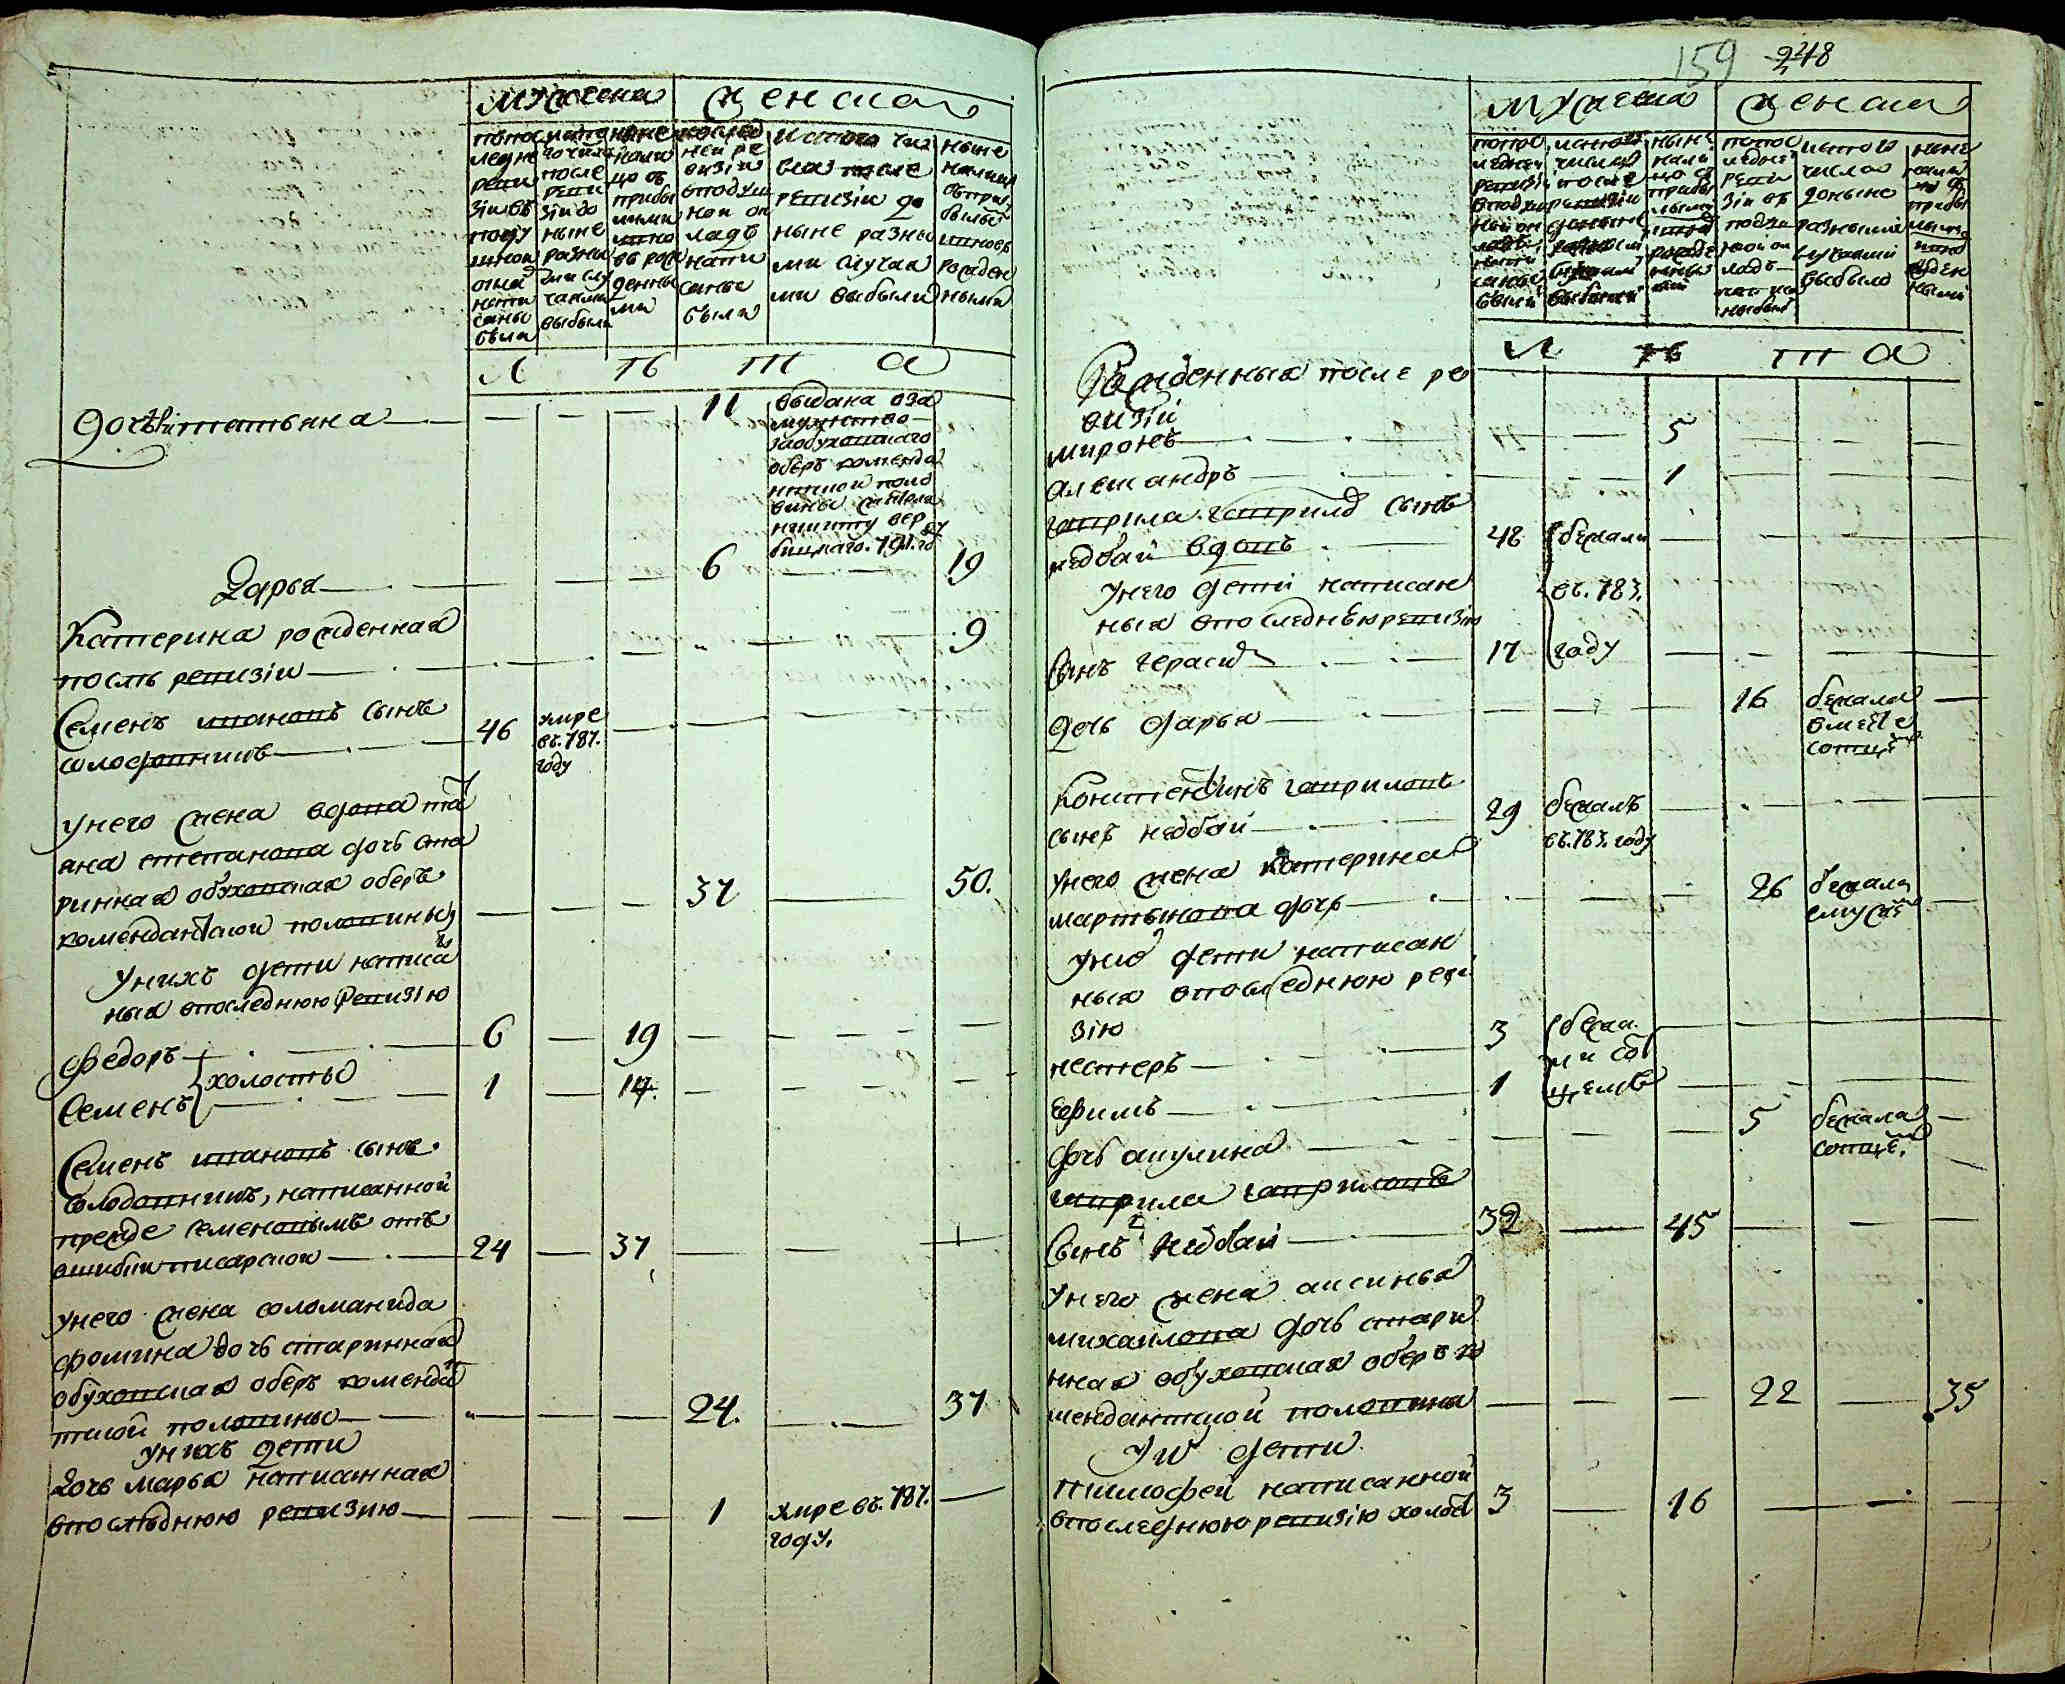 мужеска
женска
попос
ледне
реви
зіи въ
поду
шной
окла
напи
саны
была
после
реви
зіи до
ныне
разны
ми слу
чаями
выбыли
ныне
нали
цо съ
прибы
лыми
вновь рож
денны
ми
ней ре
визіи
вподуш
ной ок
ладъ
напи
саны
была
исъ того чис
ла после
ревизіи до
ныне разны
ми случая
ми выбыли
ныне
налицо
съприбылыми
вновь
рожден
ными
л ѣ т а
дочь татьяна
11
выдана вза
мужство
заобуховскаго
оберъ коменда
нтской поло
вины
бицкаго. 791. го
Дарья
6
19
Катерина рожденная
послѣ ревизіи
9
Семенъ ивановъ сынъ
солодовникъ
46
умре
въ. 787.
году
Унего жена вдова тать
яна степанова дочь ста
ринная обуховская оберъ
комендантской половины
37
50.
Унихъ дети написан
ныя впоследнюю ревизію
Федоръ
6
19
холосты
Семенъ
1
14.
Семенъ ивановъ сынъ
солодовникъ, написанной
прежде семеновымъ отъ
ошибки писарской
24
37
унего жена соломанида
фомина дочь старинная
обуховская оберъ комендан
тской половины
24.
37
Унихъ дети
дочь марья написанная
впослѣднюю ревизію
1
умре въ. 787.
году.
159 248
мужеска
женска
попос
ледней
ревизіи
вподуш
ной ок
ладъ
напи
саны
были
исътого
числа
после
ревизіи
доныне
разными
случаями
выбыли
ныне
нали
цо съ
прибы
лыми
вновь
рожде
нны
ми
попос
ледней
реви
зіи въ
подуш
ной ок
ладъ
написа
ны были
исътого
числа
доныне
разными
случаями
выбыло
ныне
нали
цо съ
прибы
лыми
вновь
рожден
ными
л ѣ т а
Рожденныя после ре
визіи
миронъ
5
александръ
1
гаврила гаврилов сынъ
недбай вдовъ
48
бежали
въ. 783.
году
Унего дети написан
ныя впоследнѣю ревизію
Сынъ герасим
17
дочь дарья
16
бежала
вместе
сотцем
Константинъ гавриловъ
сынъ недбай
29
бежалъ
въ. 783. году
унего жена катерина
мартынова дочь
26
бежала
смужем
унихъ дети написан
ныя впоследнюю реви
зію
нестеръ
3
бежа
ли со
тцемъ
ефимъ
1
дочь акулина
5
бежала
сотцем.
гаврила гавриловъ
Сынъ 2й недбай
32
45
Унего жена аксинья
михайлова дочь стари
нная обуховская оберъ ко
мендантской половины
22
35
Уних дети
тимофей написанной
впоследнюю ревизію холост
3
16